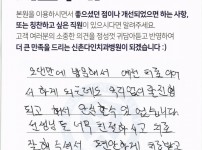 본원을 이용하시면서 좋으셨던 점이나 개선되었으면 하는 사항,
또는 칭찬하고 싶은 직원이 있으시다면 알려주세요.
고객 여러분의 소중한 의견을 정성껏 귀담아듣고 반영하여
더 큰 만족을 드리는 신촌다인치과병원이 되겠습니다 :)
오랜만에 방문해서 예전 치료 이어
서 하게 되었는데도 무리없이 진행
되고 해서 안심할수 있었습니다.
선생님도 너무 친절하시고 치료